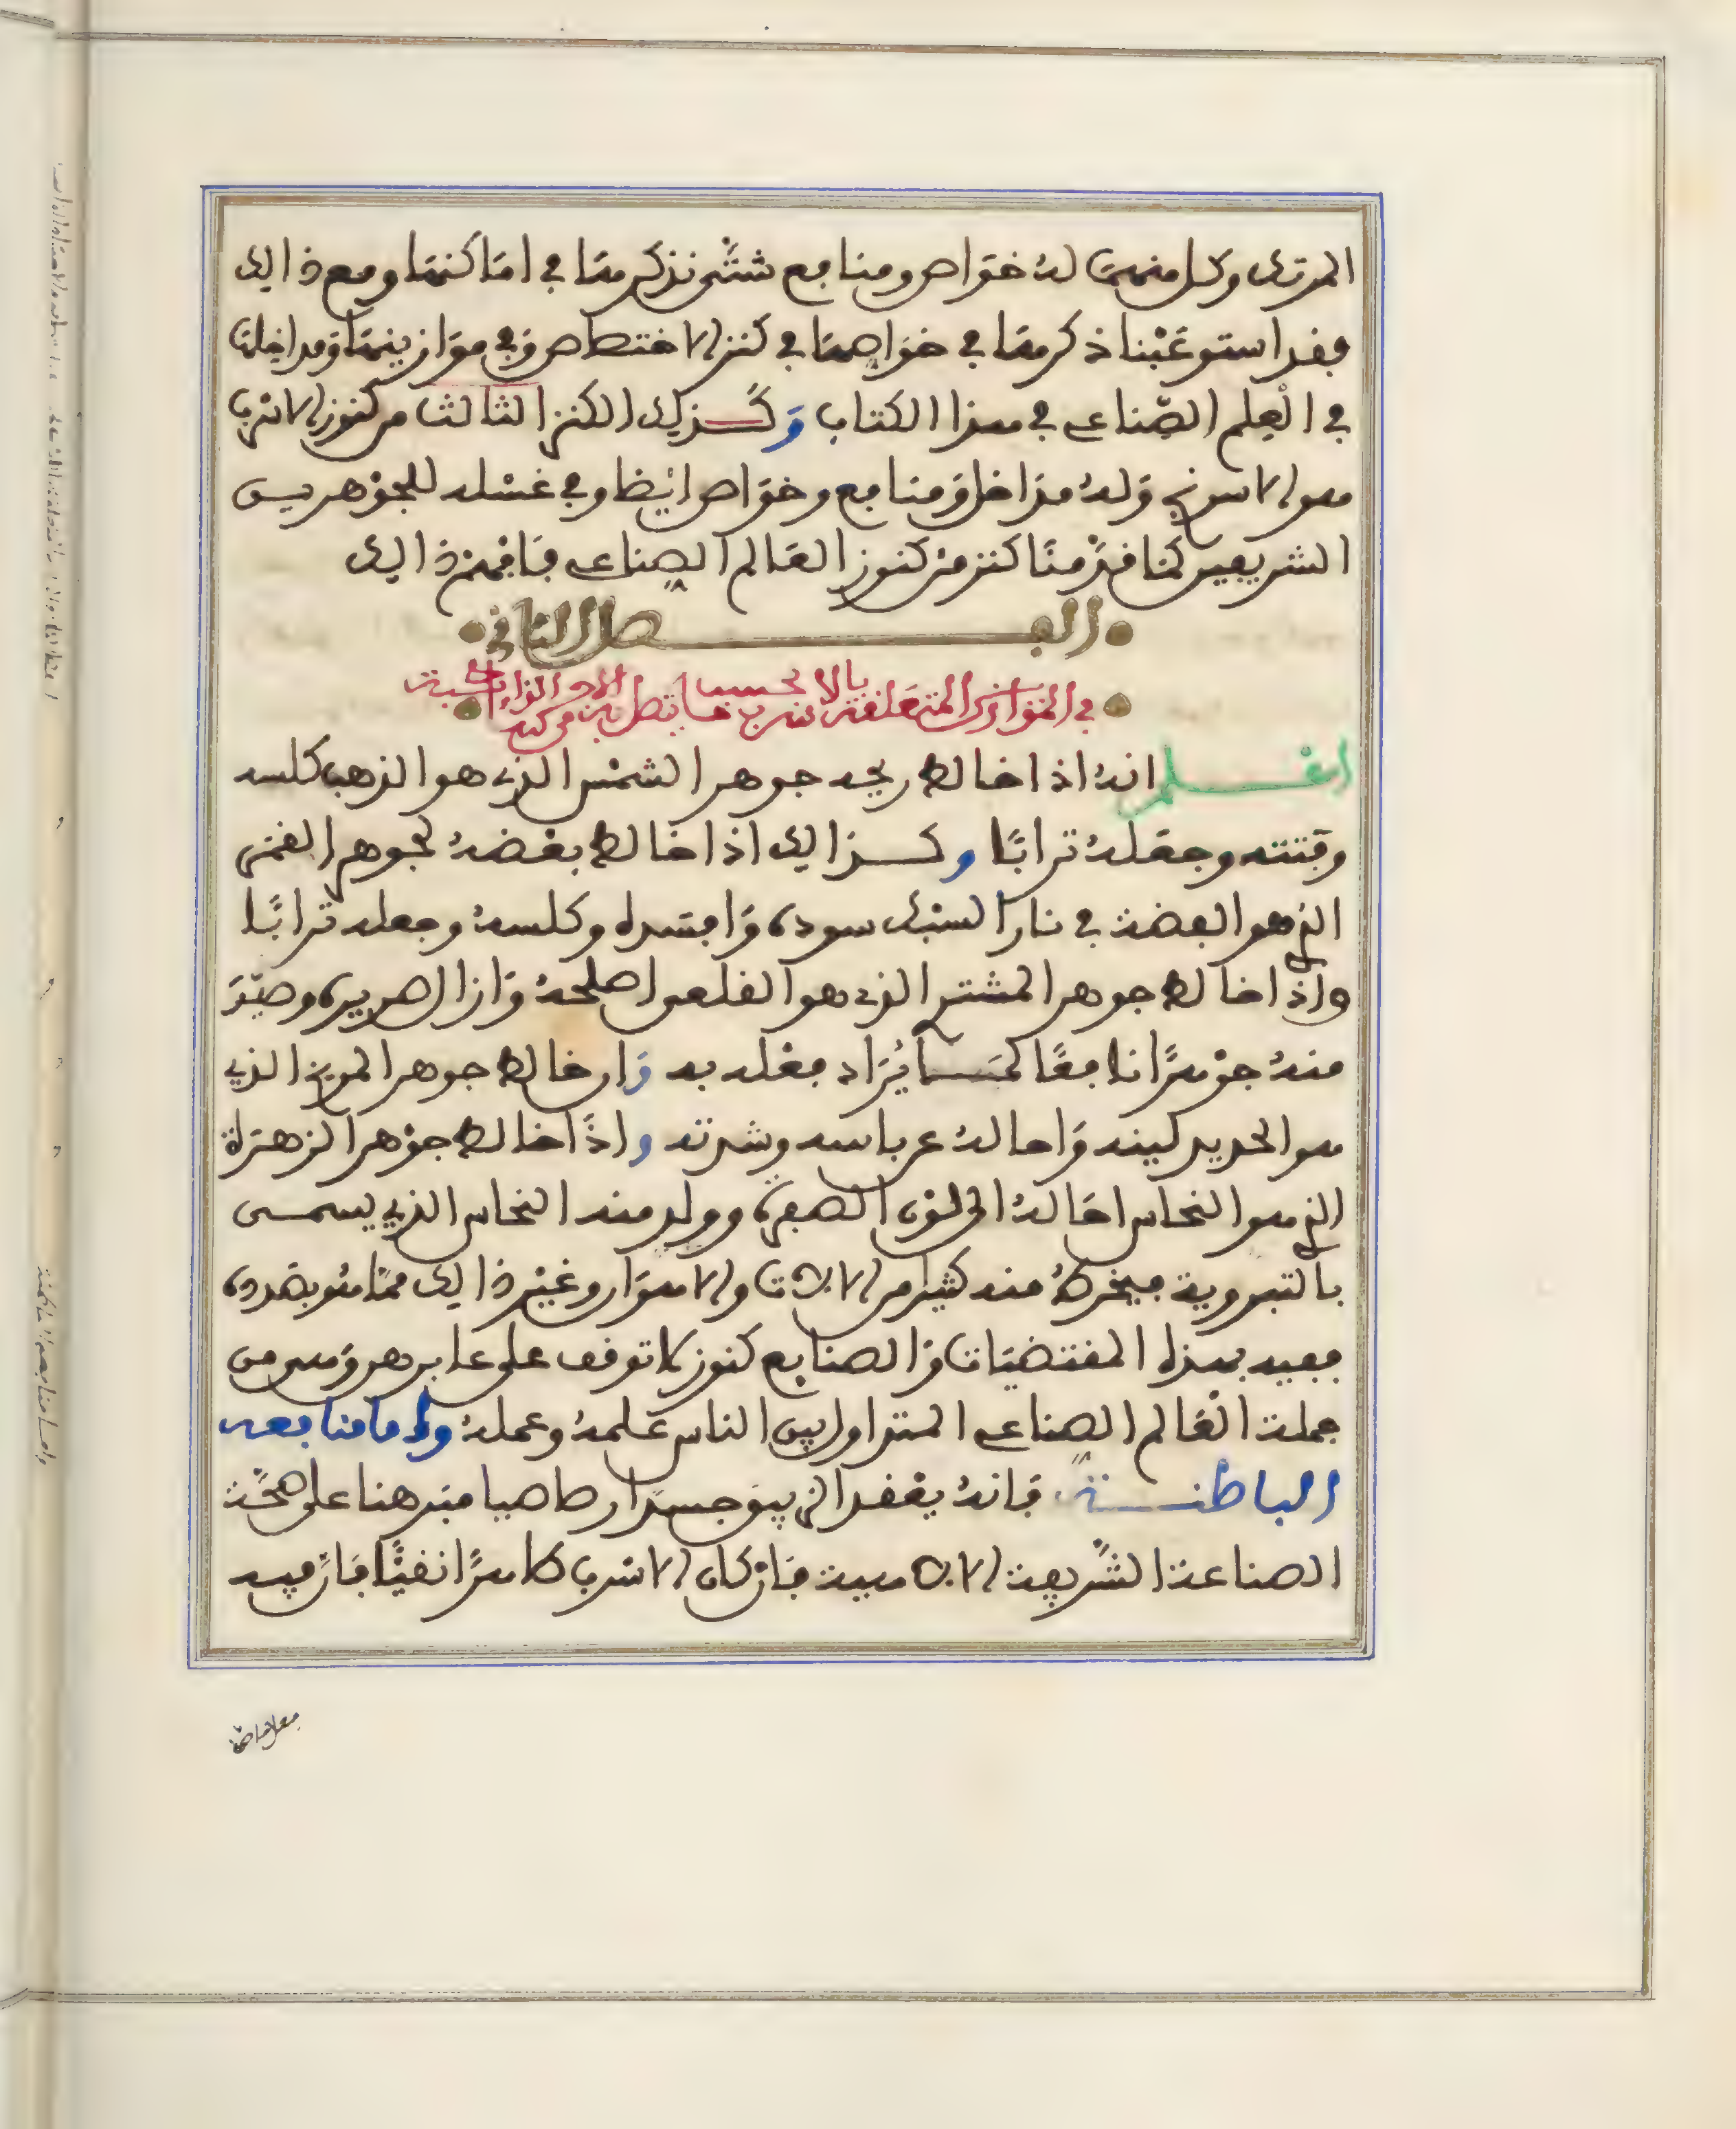 المرتك وكل منهما له خواص ومنافع شتى نذكرها في اماكنها ومع ذالك
فقد استوعبنا ذكرها في خواصها في كنز الاختصاص وفي موازينها ومداخلها
في العلم الصناعي في هذا الكتاب وكذلك الكنز الثالث من كنوز الاسرب
هو الاسرنج وله مداخل ومنافع وخواص ايضا وفي غسله للجوهرين
الشريفين كما قدمنا كنز من كنوز العالم الصناعي فافهم ذالك
الفصل الثاني
في الموازن المتعلقة بالاسرب بحسب ما يتصل به من
اعلم انه اذا خالط ريحه جوهر الشمس الذي هو الذهب كلسه
وفتته وجعله ترابا وكذالك اذا خالط بعضه لجوهر القمر
الذي هو الفضة في نار السبك سوده وافسده وكلسه وجعله ترابا
واذا خالط جوهر المشتري الذي هو القلعي اصلحه وازال صريره وصير
منه جوهرا نافعا لما يراد فعله به وان خالط جوهر المريخ الذي
هو الحديد لينه واحاله عن باسه وشدته واذا خالط جوهر الزهرة
الذي هو النحاس احاله الى لون الصفرة وولد منه النحاس الذي يسمى
فيخرط منه كثير من الالات والاهوار وغير ذالك مما هو بصدده
ففيه بهذه المقتضيات والصنايع كنوز لا توقف على عابرها وهي من
جملة العالم الصناعي المتداول بين الناس علمه وعمله واما منافعه
الباطنة فانه يعقد الزيبق جسدا رصاصيا مبرهنا على صحة
الصناعة الشريفة الالاهية فان كان الاسرب طاهرا نقيا فان فيه